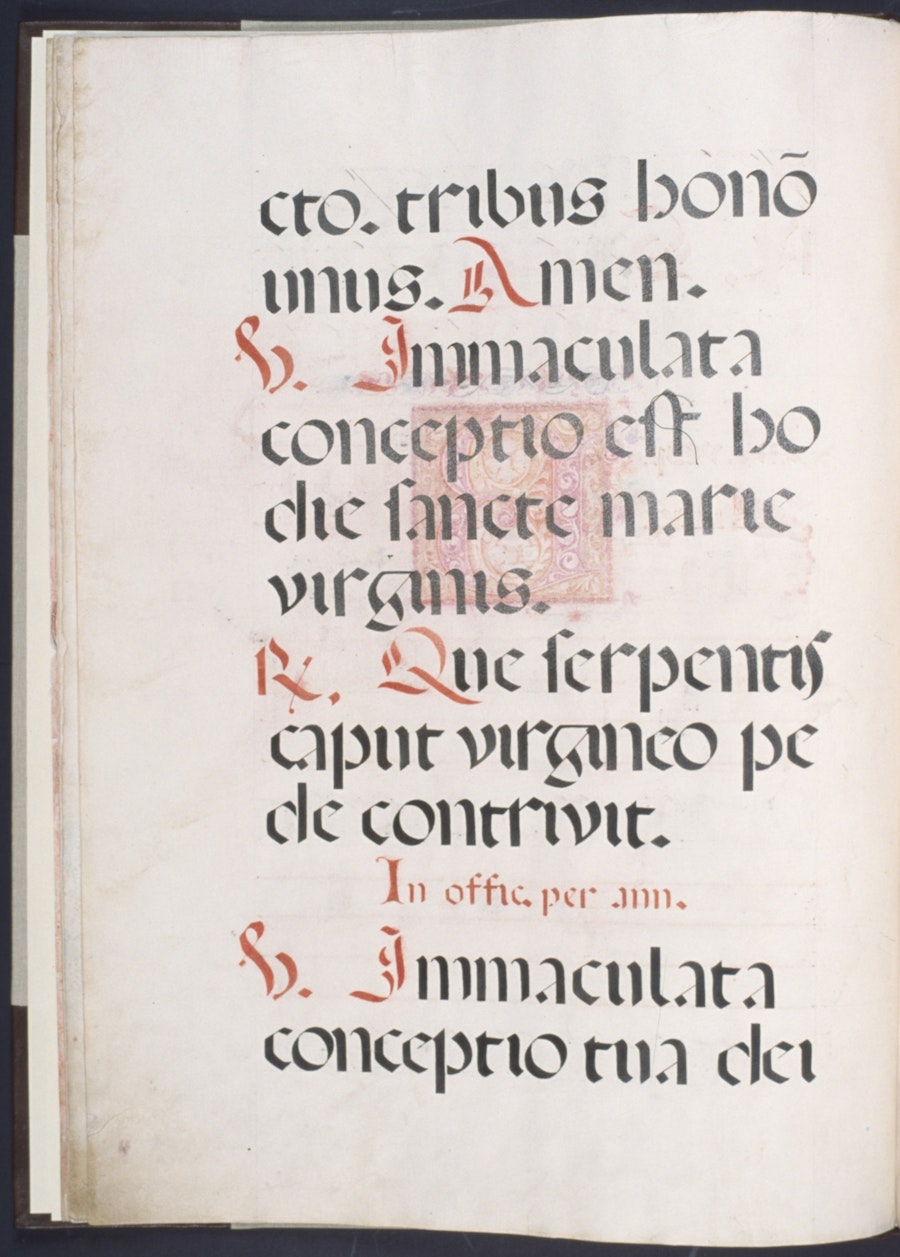 cto. tribus honõ
unus. Amen.
℣. Immaculata
conceptio est ho
die sancte marie
virginis.
℟. Que serpentis
caput virgineo pe
de contrivit.
In offic. per ann.
℣. Immaculata
conceptio tua dei